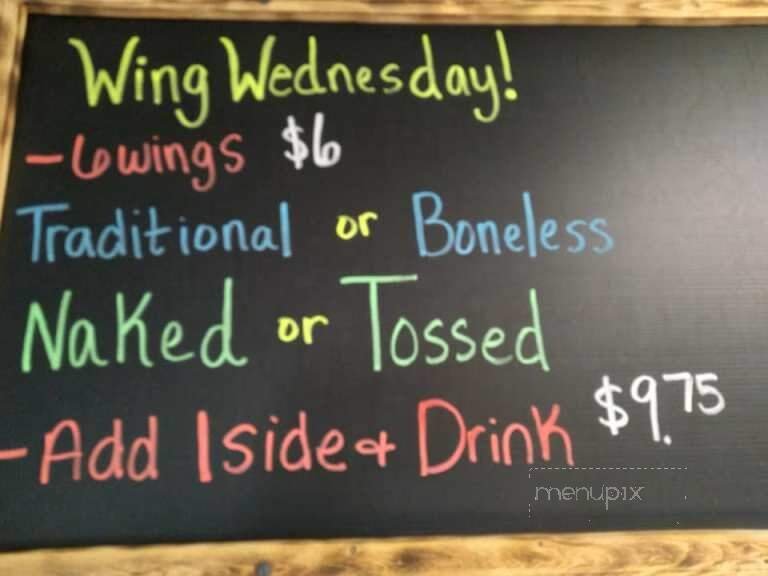 Wing Wednesday!
- 6 wings $6
Traditional or Boneless
Naked or Tossed
- Add 1 side + Drink $9.75
menupix